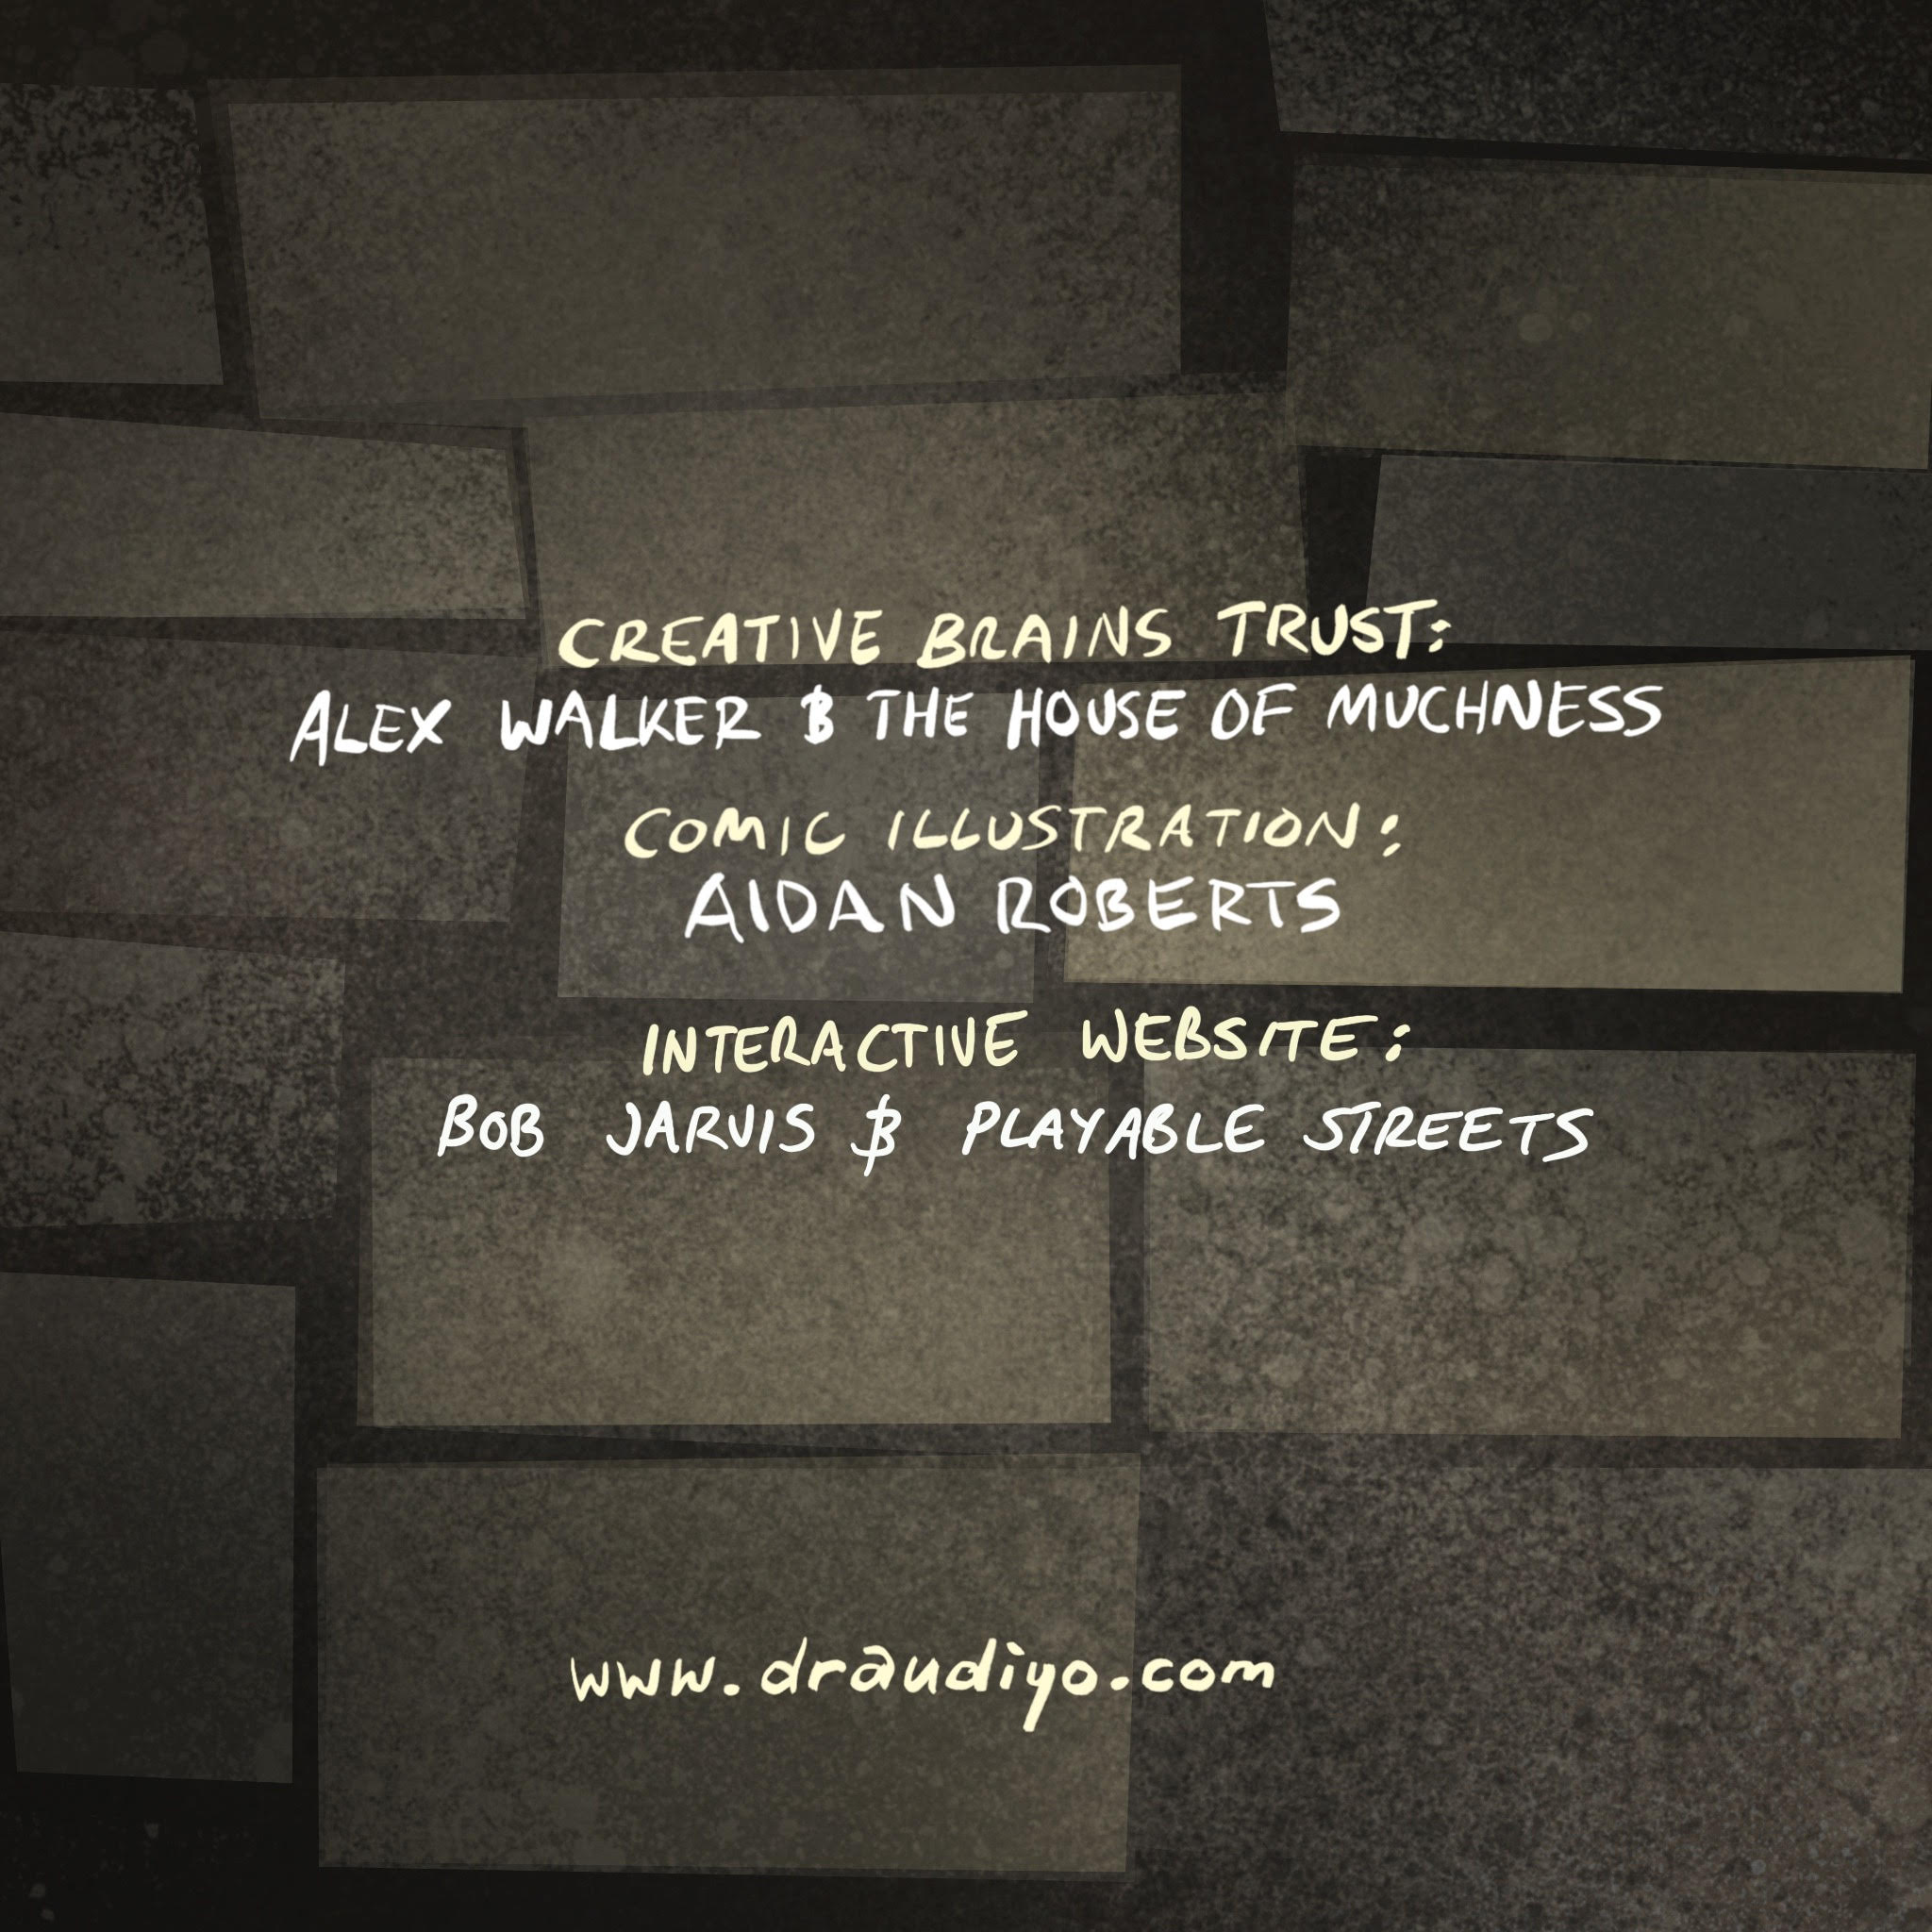 CREATIVE BRAINS TRUST:
ALEX WALKER & THE HOUSE OF MUCHNESS
COMIC ILLUSTRATION:
AIDAN ROBERTS
INTERACTIVE WEBSITE:
BOB JARVIS & PLAYABLE STREETS
www.draudiyo.com